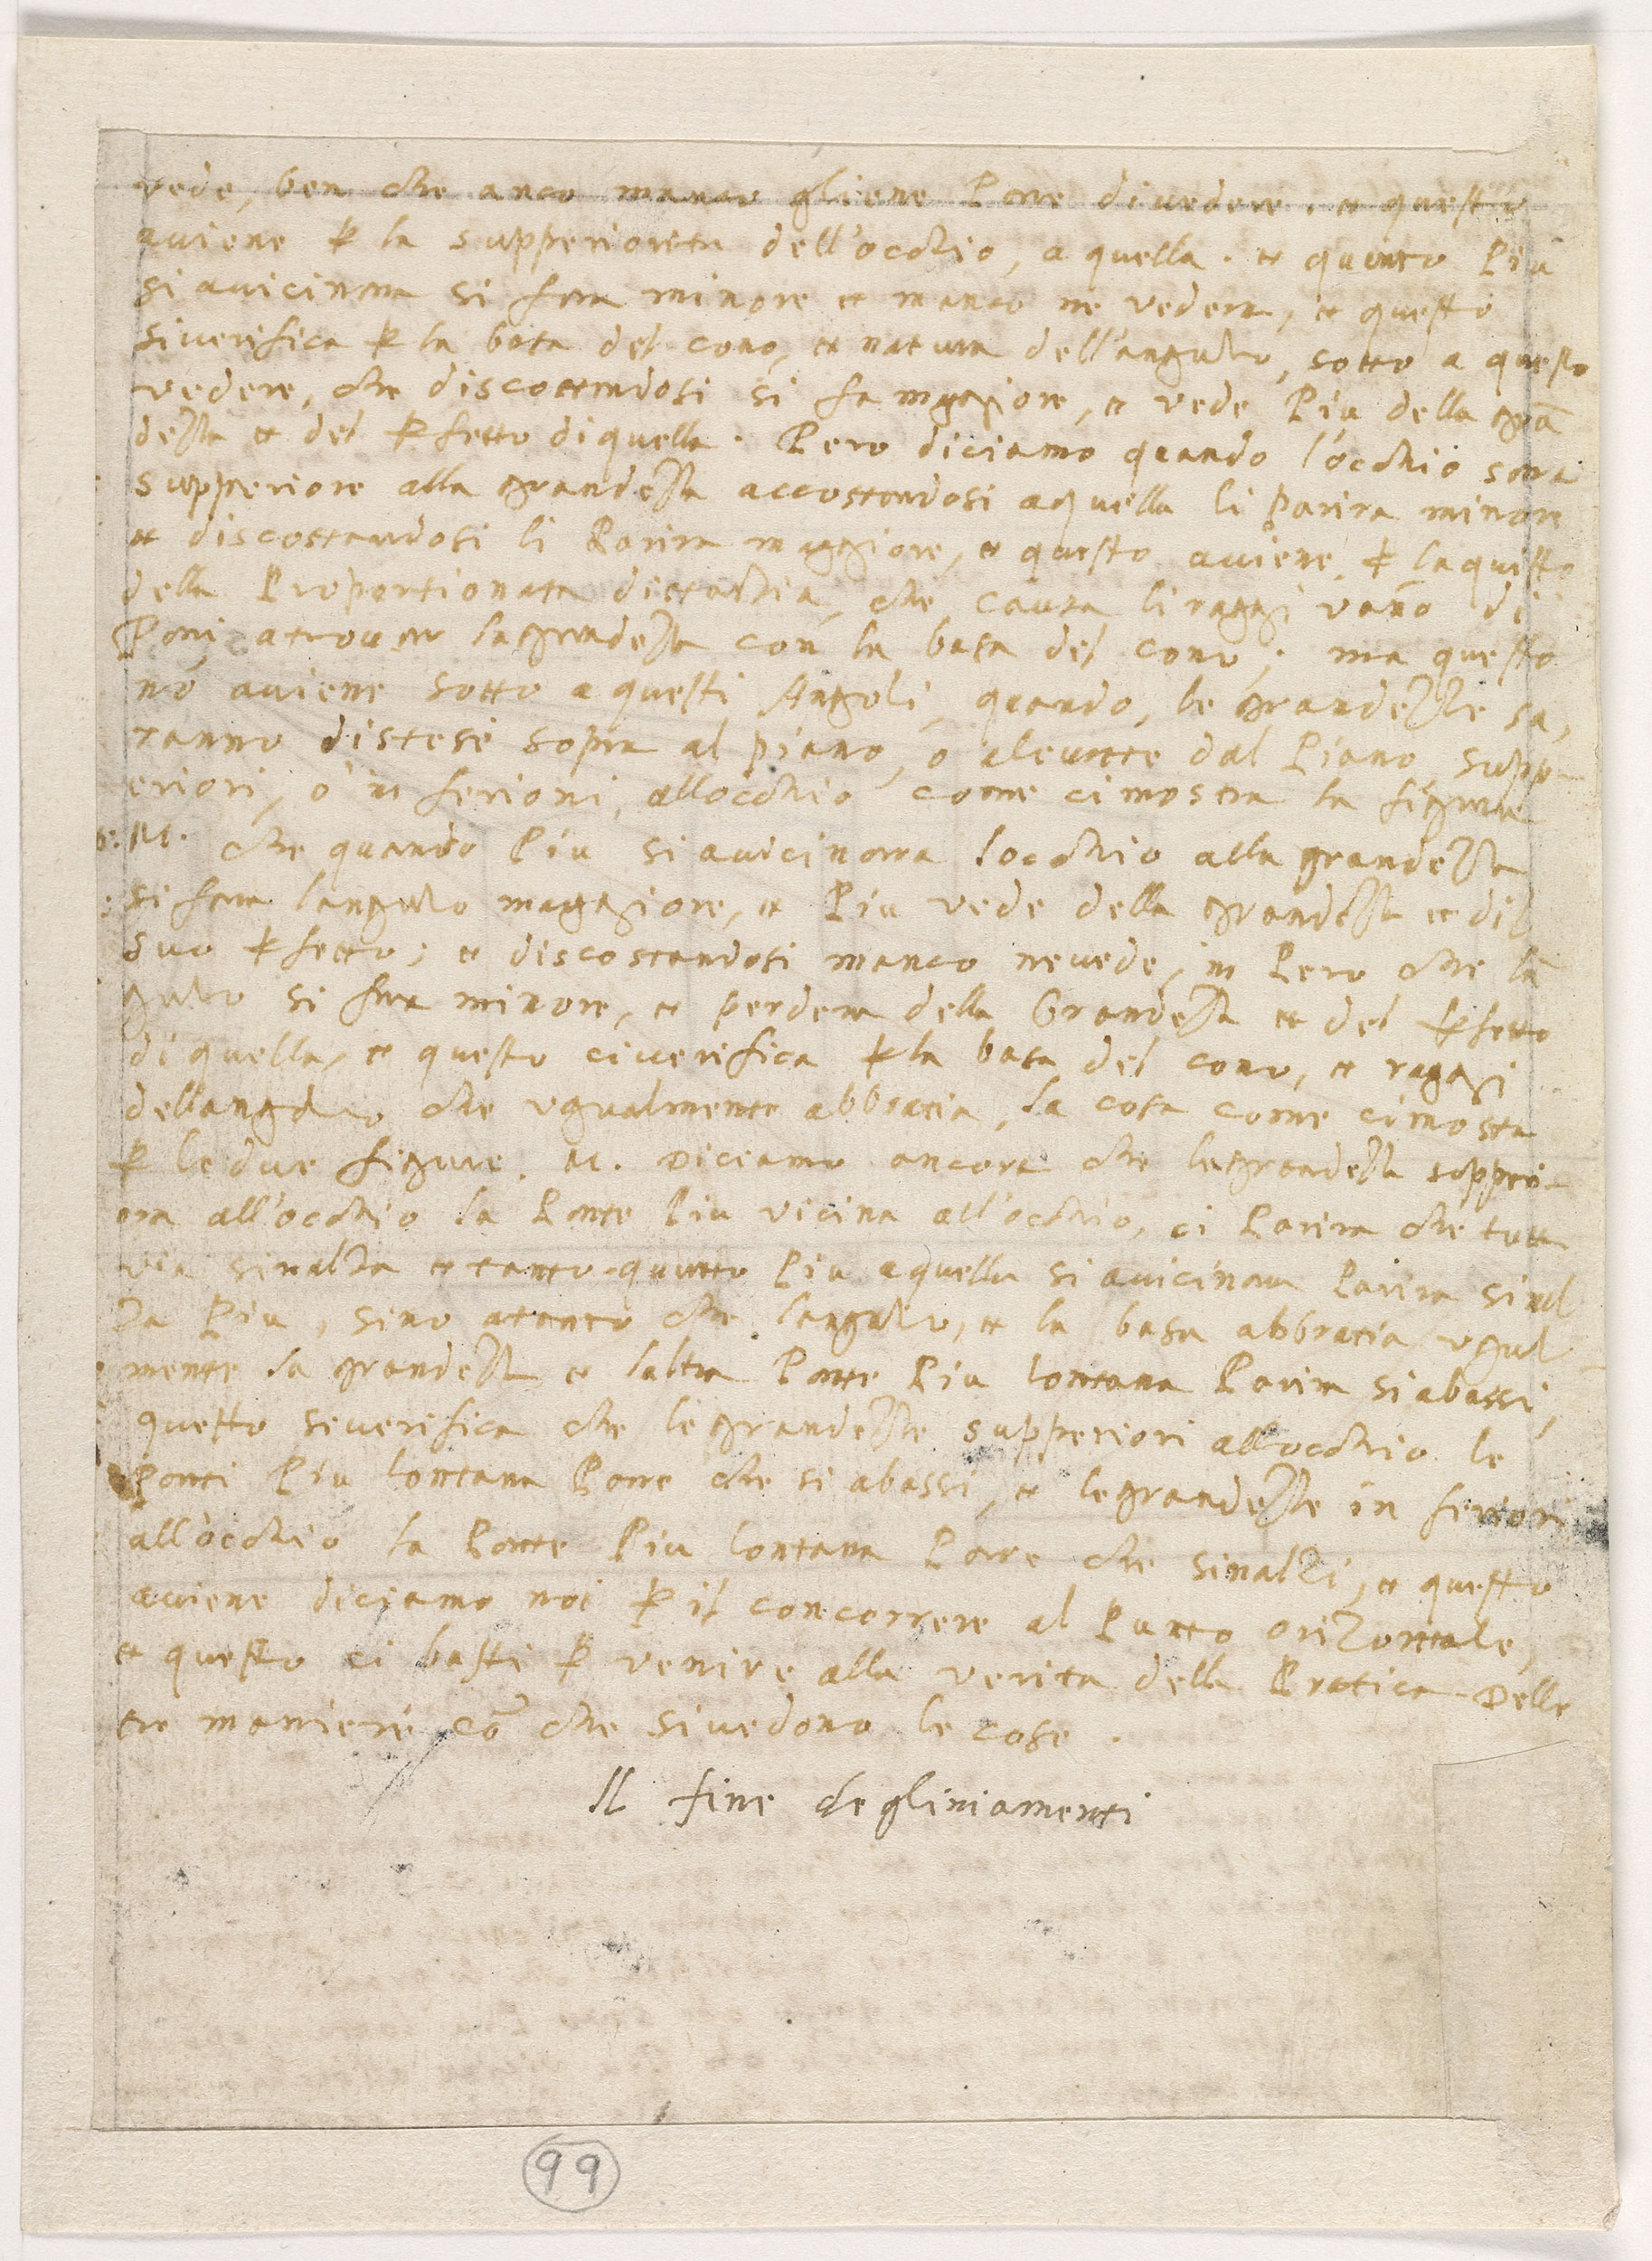 vede, ben che anco manco gliene Pare divedere. et questo
aviene p la supperiorita dell'occhio, a quella. et quanto Piu
si avicinara si fara minore et manco ne vedera, et questo
siverifica p la basa del cono, et natura dell'angulo, sotto a questo
vedere, che discostandosi si fa magiore, et vede Piu della grā
dezza et del pfetto di quella. Pero diciamo quando l'occhio sara
supperiore alla grandezza accostandosi aquella li parira minore
et discostandosi li Parira maggiore, et questo aviene, p laquisto
della Proportionata distantia, che causa li raggi vano di
Pari atrovar lagrandezza con la basa del cono; ma questo
nō aviene sotto a questi Angoli, quando, le grandezze sa,
ranno distese sopra al piano, o alevatte dal Piano, supp-
eriori, o in feriori, allocchio come ci mostra la figura
M. che quando Piu si avicinara locchio alla grandezza
si fara langulo maggiore, et Piu vede della grandezza et del
suo pfetto; et discostandosi manco nevede, in Pero che lā
gulo si fara minore, et perdera della Grandezza et del pfetto
di quella, et questo civerifica p la basa del cono, et raggi
dellangulo che ugualmente abbracia, la cosa come cimosta
p le due figure. M. Diciamo ancora che lagrandezza supperi-
ora all'occhio la Parte Piu vicina all'occhio, ci Parira che tutta
via sinalza et tanto quanto Piu aquella si avicinara Parira sinal
za Piu, sino atanto che langulo, et la basa abbracia ugual-
mente la grandezza et laltra Parte Piu lontana Parira si abassi,
questo siverifica che le grandezze supperiori allocchio le
Parti Piu lontana Pare che si abassi, et legrandezze in feriori
all'occhio la Parte Piu lontana Pare che sinalzi, et questo
aviene diciamo noi p il concorrere al Punto orizontale,
et questo ci basti p venire alla verita della Pratica Delle
tre maniere cō che si vedono le cose.
Il fine degliniamenti
99